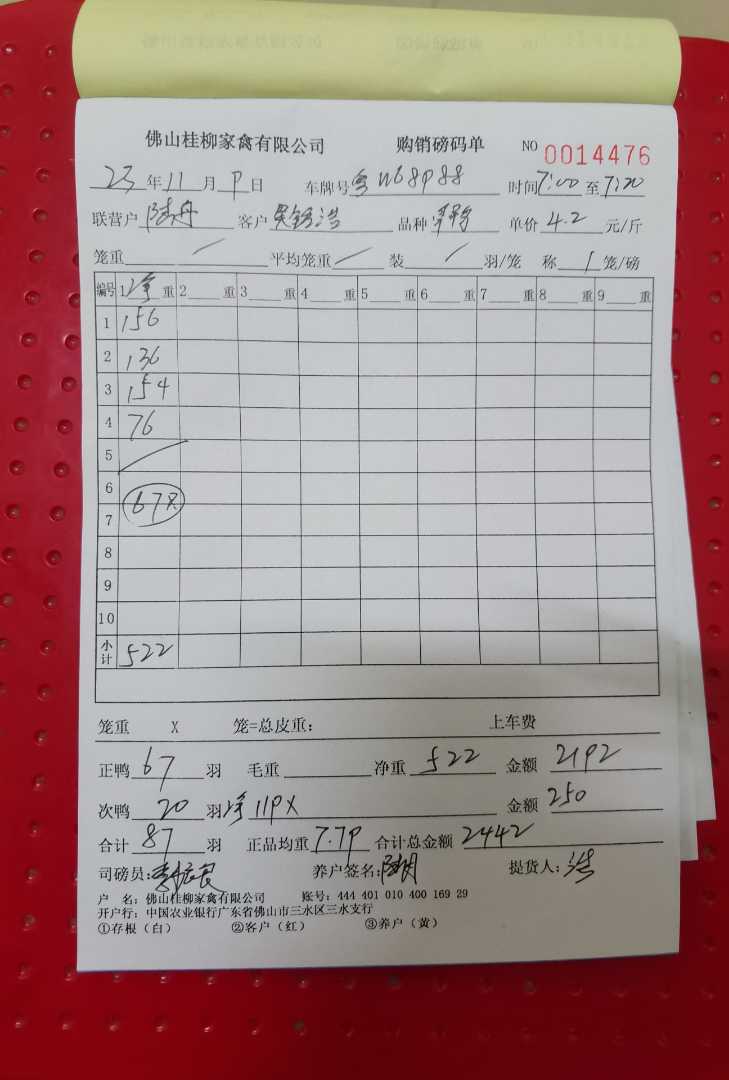 佛山桂柳家禽有限公司 购销磅码单 NO 0014476
23年11月9日 车牌号粤W68988 时间7:00至7:20
联营户 陆丹 客户 吴锦浩 品种 单价4.2元/斤
笼重 / 平均笼重 / 装 / 羽/笼 称 1 笼/磅
编号 1净重 2 重 3 重 4 重 5 重 6 重 7 重 8 重 9 重
1 156
2 136
3 154
4 76
5 /
6
67只
7
8
9
10
小计 522
笼重 X 笼=总皮重: 上车费
正鸭67羽 毛重 净重522 金额2192
次鸭20羽 净119X 金额250
合计87羽 正品均重7.79 合计总金额2442
司磅员: 养户签名: 提货人:浩
户 名: 佛山桂柳家禽有限公司 账号: 444 401 010 400 169 29
开户行: 中国农业银行广东省佛山市三水区三水支行
①存根(白) ②客户(红) ③养户(黄)